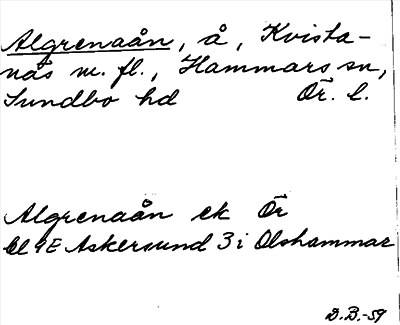 Algrenaån, å, Kvista-
näs m. fl., Hammars sn,
Sundbo hd Ör. l.
Algrenaån ek Ör
9E Askersund 3 i Olshammar
D.B.-59